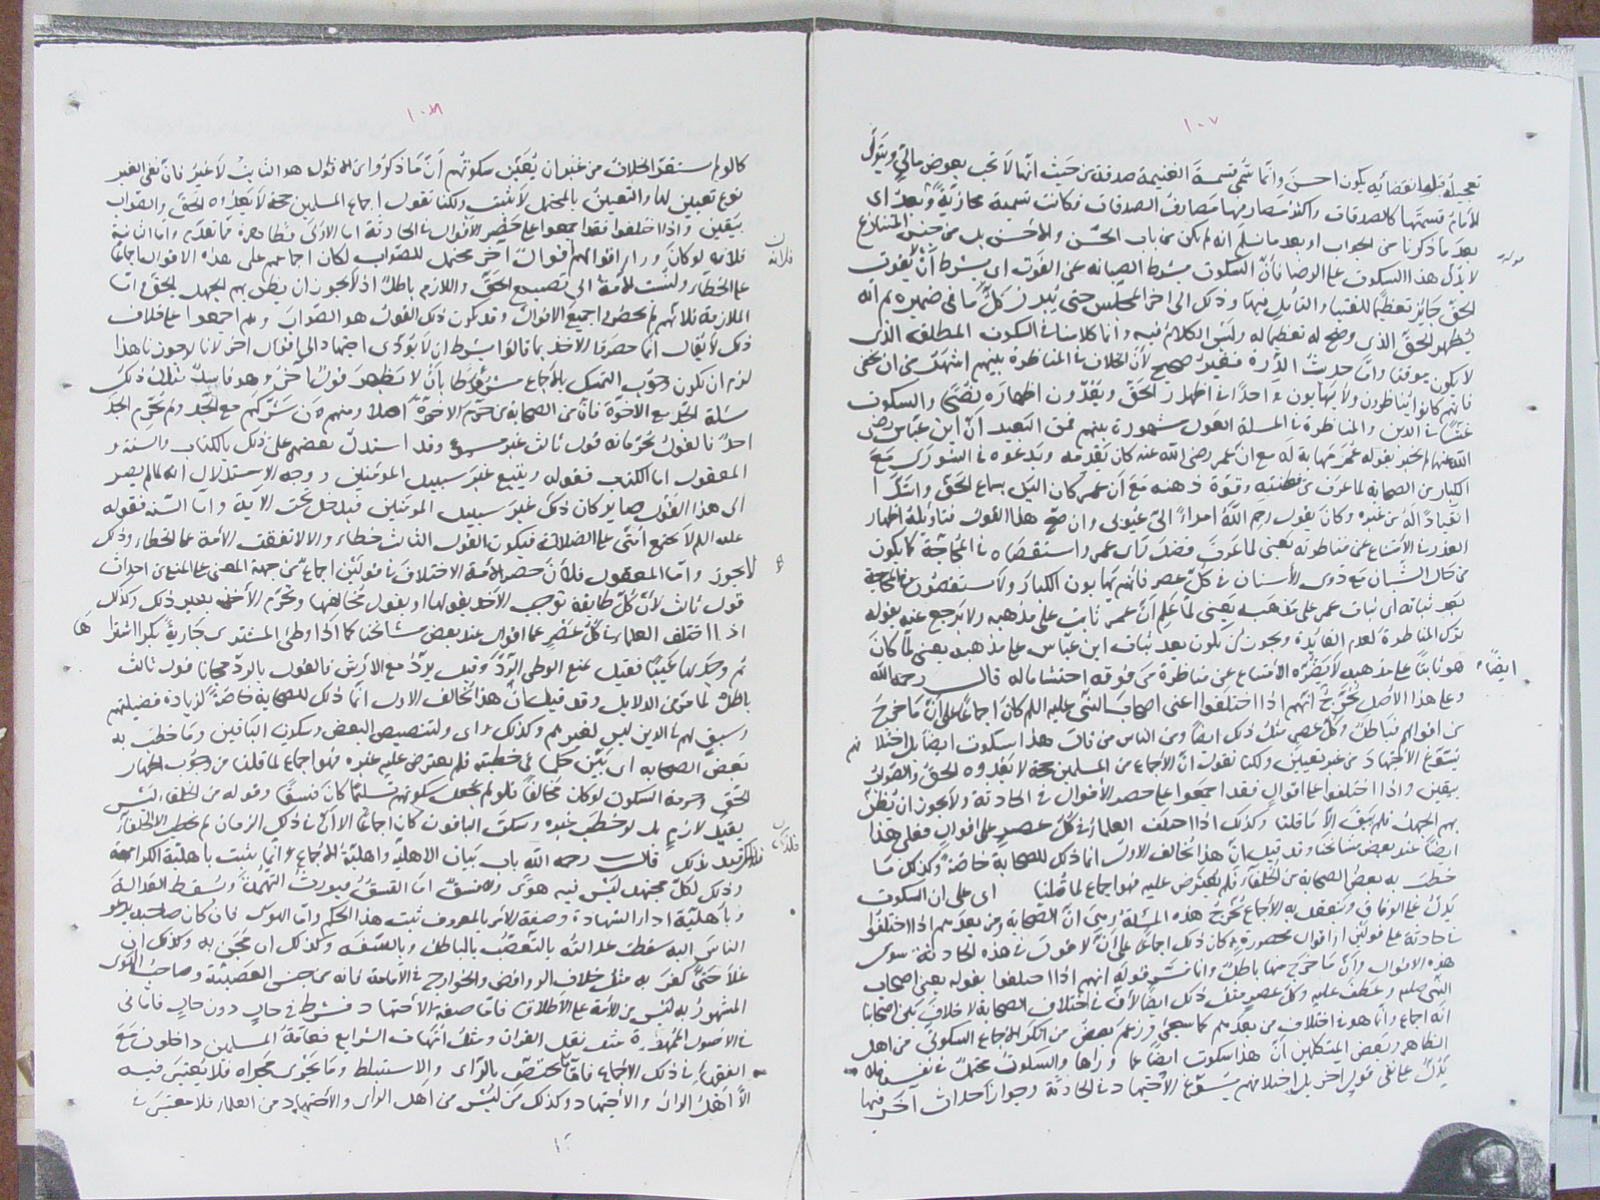 ١٠٧
تعجيله قبل انقضائه يكون احسن وانما سمى قسمة الغنيمة صدقة من حيث انها لا تجب بعوض مالي ويتولى
الامام قسمتها كالصدقات وكذا مصارفها مصارف الصدقات فكانت تسمية مجازية وبعد اى
بعد ما ذكرنا من الجواب او بعد ما نسلم انه لم يكن من باب الحسن والاحسن بل من جنس المتنازع
لا يدل هذا السكوت على الرضا فان السكوت بشرط الصيانة عن الفوت اى بشرط ان لا يفوت
الحق جائز تعظيما للفتيا والتأمل فيها وذلك الى اخر المجلس حتى يبرز كل ما فى ضميره ثم انه
يظهر الحق الذى وضح له تعظيما له وليس الكلام فيه وانما كلامنا فى السكوت المطلق الذى
لا يكون موقتا واما حديث الدرة فغير صحيح لان الخلاف فى المناظرة بينهم اشهر من ان يخفى
فانهم كانوا يناظرون ولا يهابون احدا فى اظهار الحق ويعدون اظهاره نصحا والسكوت
غشا فى الدين والمناظرة فى مسئلة العول مشهورة بينهم فمن البعيد ان ابن عباس رضى
الله عنهما لم يخبر بقوله عمر مهابة له مع ان عمر رضى الله عنه كان يقدمه ويدعوه فى الشورى مع
الكبار من الصحابة لما عرف من فطنته وقوة ذهنه مع ان عمر كان الين بسماع الحق واشد
انقيادا له من غيره وكان يقول رحم الله امرأ اهدى الى عيوبى وان صح هذا القول فتأويله اظهار
العذر فى الامتناع عن مناظرته يعنى لما عرف فضل رأى عمر واستقصاه فى المحاجة كما يكون
من حال الشبان مع ذوى الاسنان فى كل عصر فانهم يهابون الكبار ولا يستقصون فى المحاجة
بعد ثباته اى ثبات عمر على مذهبه يعنى لما علم ان عمر ثابت على مذهبه ولا يرجع عنه بقوله
ترك المناظرة لعدم الفائدة ويجوز ان يكون بعد ثبات ابن عباس على مذهبه يعنى لما كان
هو ثابتا على مذهبه لا يضره الامتناع عن مناظرة من فوقه احتشاما له قال رحمه الله
وعلى هذا الاصل يخرج انهم اذا اختلفوا اعنى اصحاب النبى عليه السلام كان اجماعا على ان ما خرج
من اقوالهم فباطل وكل عصر مثل ذلك ايضا ومن الناس من قال هذا سكوت ايضا بل اختلافهم
يسوغ الاجتهاد من غير تعيين ولكنا نقول ان الاجماع من المسلمين حجة لا يعدوه الحق والصواب
بيقين واذا اختلفوا على اقوال فقد اجمعوا على حصر الاقوال فى الحادثة ولا يجوز ان يظن
بهم الجهل فلم يبق الا ما قلنا وكذلك اذا اختلف العلماء فى كل عصر على اقوال فعلى هذا
ايضا عند بعض مشائخنا وقد قيل ان هذا بخلاف الاول انما ذلك للصحابة خاصة وكذلك ما
خطب به بعض الصحابة من الخلفاء فلم يعترض عليه فهو اجماع لما قلنا اى على ان السكوت
يدل على الوفاق وينعقد به الاجماع تخرج هذه المسئلة وهى ان الصحابة ومن بعدهم اذا اختلفوا
فى حادثة على قولين او اقوال محصورة كان ذلك اجماعا على انه لا قول فى هذه الحادثة سوى
هذه الاقوال وان ما خرج منها باطل وانما فسر قوله انهم اذا اختلفوا بقوله يعنى اصحاب
النبى صلعم وعطف عليه وكل عصر مثل ذلك ايضا لان فى اختلاف الصحابة لا خلاف بين اصحابنا
انه اجماع وانما هو فى اختلاف من بعدهم كما سيجئ وزعم بعض من انكر الاجماع السكوتى من اهل
الظاهر وبعض المتكلمين ان هذا سكوت ايضا عما وراها والسكوت محتمل فى نفسه فلا
يدل على نفى قول اخر بل اختلافهم يسوغ الاجتهاد فى الحادثة وجواز احداث اخر فيها
ايضا
١٠٨
كالو لم استقر الخلاف من غير ان يتعين سكوتهم ان ما ذكروا من الاقوال هو الثابت لا غير فان نفى الغير
نوع تعيين لها والتعيين بالمحتمل لا يثبت ولكنا نقول اجماع المسلمين حجة لا يعدوه الحق والصواب
بيقين واذا اختلفوا فقد اجمعوا على حصر الاقوال فى الحادثة اما الاولى فظاهرة مما تقدم واما الثانية
فلانه لو كان وراء اقوالهم قول اخر محتمل للصواب لكان اجماعهم على هذه الاقوال اجماعا
على الخطاء ولنسب الامة الى تضييع الحق واللازم باطل اذ لا يجوز ان يظن بهم الجهل بالحق واما
الملازمة فلانهم لم يحصروا جميع الاقوال وقد يكون ذلك القول هو الصواب ولم اجمعوا على خلاف
ذلك لا يقال انما حصر فالاخذ بما قالوا بشرط ان لا يؤدى اجتهاد الى اقوال اخر لانا لو جوزنا هذا
لزم ان يكون وجوب التمسك بالاجماع مشروطا بان لا يظهر قول اخر وهو فاسد مثال ذلك
مسئلة الجد مع الاخوة فان من الصحابة من حرم الاخوة اصلا ومنهم من شركهم مع الجد ولم يحرم الجد
احد فالقول بحرمانه قول ثالث غير مسموع وقد استدل بعضهم على ذلك بالكتاب والسنة و
المعقول اما الكتاب فقوله ويتبع غير سبيل المؤمنين ووجه الاستدلال انه لما لم يصر
الى هذا القول صائر كان ذلك غير سبيل المؤمنين فيدخل تحت الاية واما السنة فقوله
عليه السلام لا يجتمع امتى على الضلالة فيكون القول الثالث خطاء والا لاتفقت الامة على الخطاء وذلك
لا يجوز واما المعقول فلان حصر الامة الاختلاف فى قولين اجماع من جهة المعنى على المنع من احداث
قول ثالث لان كل طائفة توجب الاخذ بقولها او بقول مخالفها وتحرم الاخذ بغير ذلك وكذلك
اذا اختلف العلماء فى كل عصر على اقوال عند بعض مشائخنا كما اذا وطئ المشترى جارية بكرا اشتراها
ثم وجد بها عيبا فقيل يمنع الوطى الرد وقيل يرد مع الارش فالقول بالرد مجانا قول ثالث
باطل لما مر من الدلايل وقد قيل ان هذا بخلاف الاول انما ذلك للصحابة خاصة لزيادة فضيلتهم
وسبق لهم فى الدين ليس لغيرهم وكذلك اى ولتنصيص البعض وسكوت الباقين وما خطب به
بعض الصحابة اى بين حكما فى خطبته فلم يعترض عليه غيره فهو اجماع لما قلنا من وجوب اظهار
الحق وحرمة السكوت لو كان مخالفا فلو لم يجعل سكوتهم تسليما كان فسقا وقوله من الخلفاء ليس
بقيد لازم بل لو خطب غيره وسكت الباقون كان اجماعا الا ان فى ذلك الزمان لم يخطب الا الخلفاء
فلذلك قيد بذلك قال رحمه الله باب بيان الاهلية واهلية الاجماع انما يثبت باهلية الكرامة
وذلك لكل مجتهد ليس فيه هوى ولا فسق اما الفسق فيورث التهمة ويسقط العدالة
وباهلية اداء الشهادة وصفة الامر بالمعروف ثبت هذا الحكم واما الهوى فان كان صاحبه يدعو
الناس اليه سقطت عدالته بالتعصب بالباطل وبالسفه وكذلك ان مجن به وكذلك ان
غلا حتى كفر به مثل خلاف الروافض والخوارج فى الامامة فانه من جنس العصبية وصاحب الهوى
المشهور به ليس من الامة على الاطلاق فاما صفة الاجتهاد فشرط فى حال دون حال فاما فى
فى الاصول الممهدة مثل نقل القران ومثل امهات الشرايع فعامة المسلمين داخلون مع
الفقهاء فى ذلك الاجماع فاما ما يختص بالرأى والاستنباط وما يجرى مجراه فلا يعتبر فيه
الا اهل الرأى والاجتهاد وكذلك من ليس من اهل الرأى والاجتهاد من العلماء فلا معتبر فى